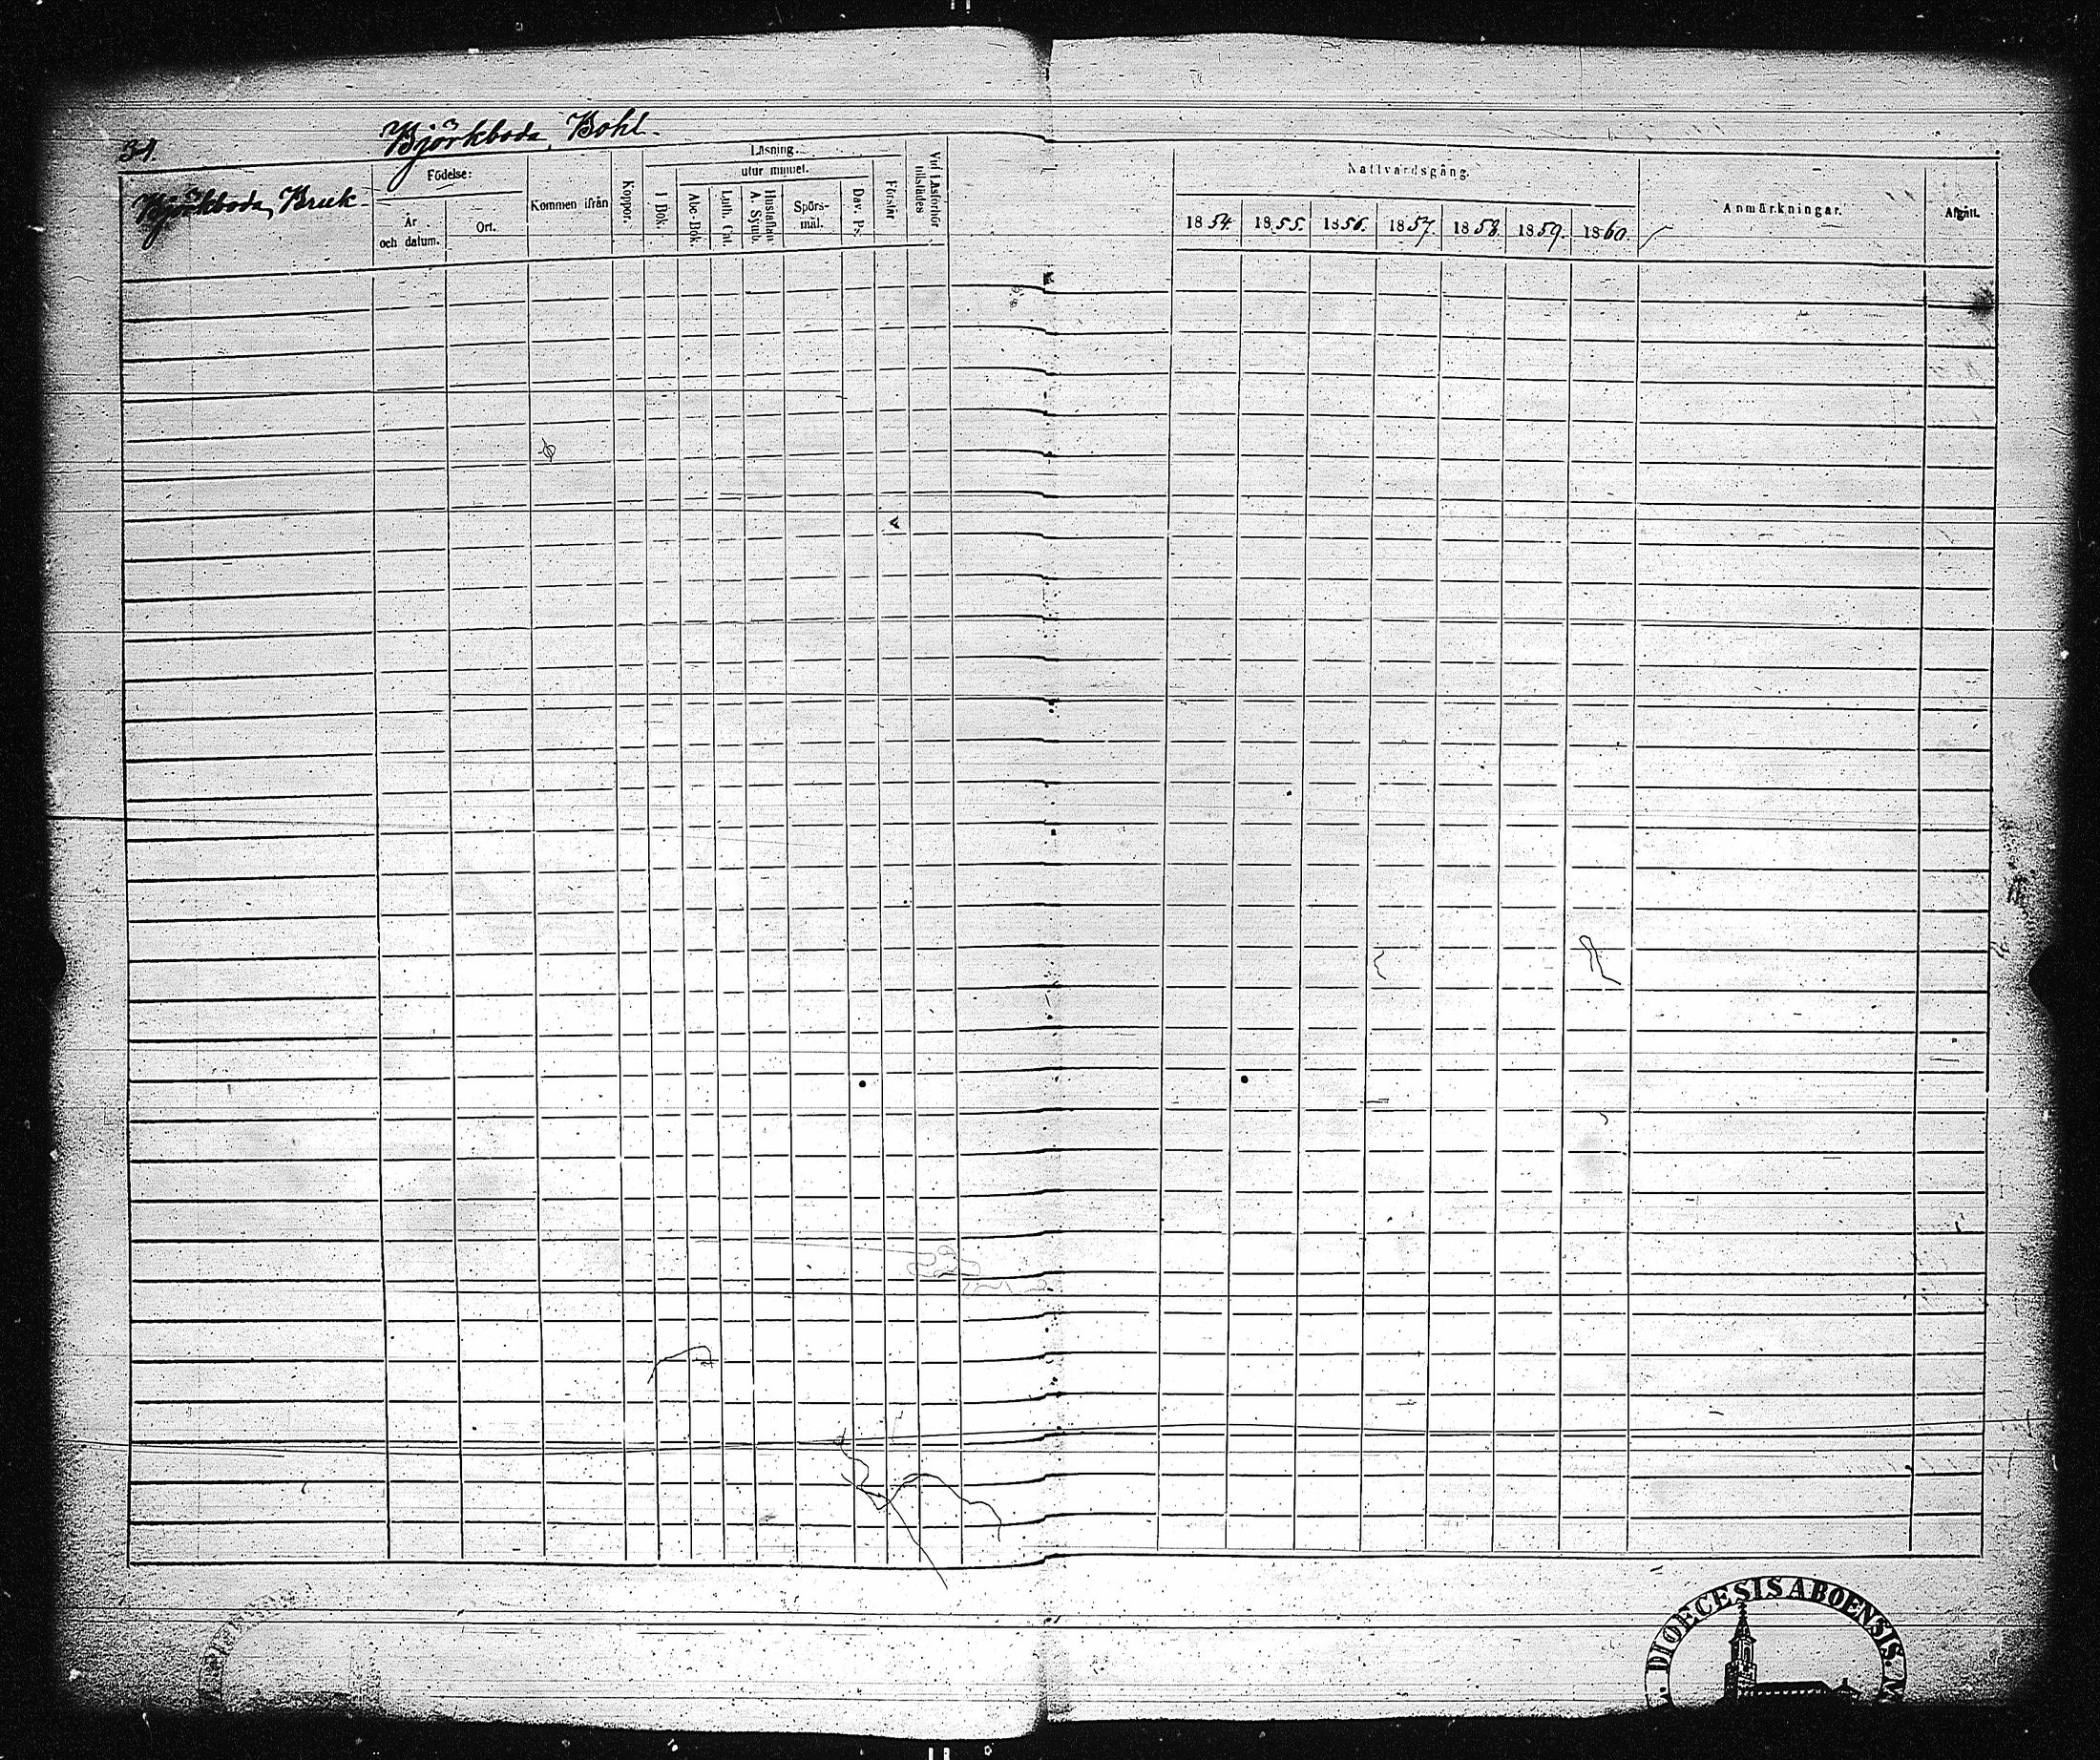 34.
Björkboda Bohl.
Björkboda, Bruk
Födelse:
År
och datum.
Ort.
Kommen ifrån
Koppor.
Läsning.
utur minnet.
I Bok.
Abc-Bok.
Luth. Cat.
Hustaflan
A. Symb.
Spörs-
mål.
Dav. Ps.
Förstår
Vid Läsförhör
tillstädes
Nattvardsgång.
1854. 1855. 1856. 1857. 1858. 1859. 1860.
Anmärkningar.
Afgått.
DIOECESIS ABOENSIS.